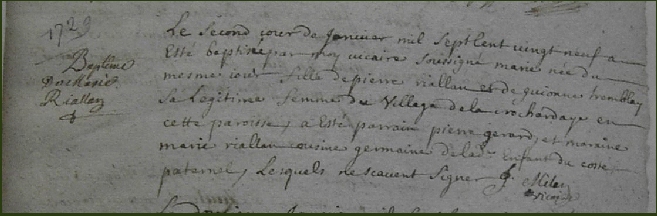 1729
Baptême
de marie
Riallan
Le second jour de Janvier mil sept Cent vingt neuf a
Esté baptisée par moy vicaire soussigné marie née du
mesme jour fille de pierre riallan et de guionne tremblay
sa Legitime femme de Village de la crochardaye en
cette paroisse, a Esté parrain pierre gerard, et maraine
marie riallan cousine germaine de lad. Enfant du costé
paternel, Lesquels ne scavent signer J. Milen
vicaire